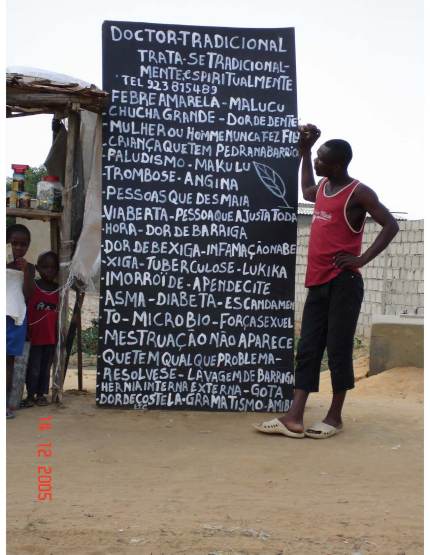 DOCTOR-TRADICIONAL
TRATA-SE TRADICIONAL-
MENTE, ESPIRITUALMENTE
TEL 923815489
FEBRE AMARELA - MALUCU
CHUCHA GRANDE - DOR DE DENTE
MULHER OU HOMEM NUNCA FEZ FILHO
CRIANÇA QUE TEM PEDRA NA BARRIGA
PALUDISMO - MAKULU
TROMBOSE - ANGINA
PESSOAS QUE DESMAIA
VIABERTA - PESSOA QUE AJUSTA TODA
HORA - DOR DE BARRIGA
DOR DE BEXIGA - INFAMAÇÃO NA BE
XIGA - TUBERCULOSE - LUKIKA
IMORROÏDE - APENDECITE
ASMA - DIABETA - ESCANDAMEN
TO - MICROBIO - FORÇA SEXUEL
- MESTRUAÇÃO NÃO APARECE
QUE TEM QUALQUE PROBLEMA -
- RESOLVESE - LAVAGEM DE BARRIGA
HERNIA INTERNA EXTERNA - GOTA
DOR DE COSTELA - GRAMATISMO - AMIBA
ETC
14 12 2005